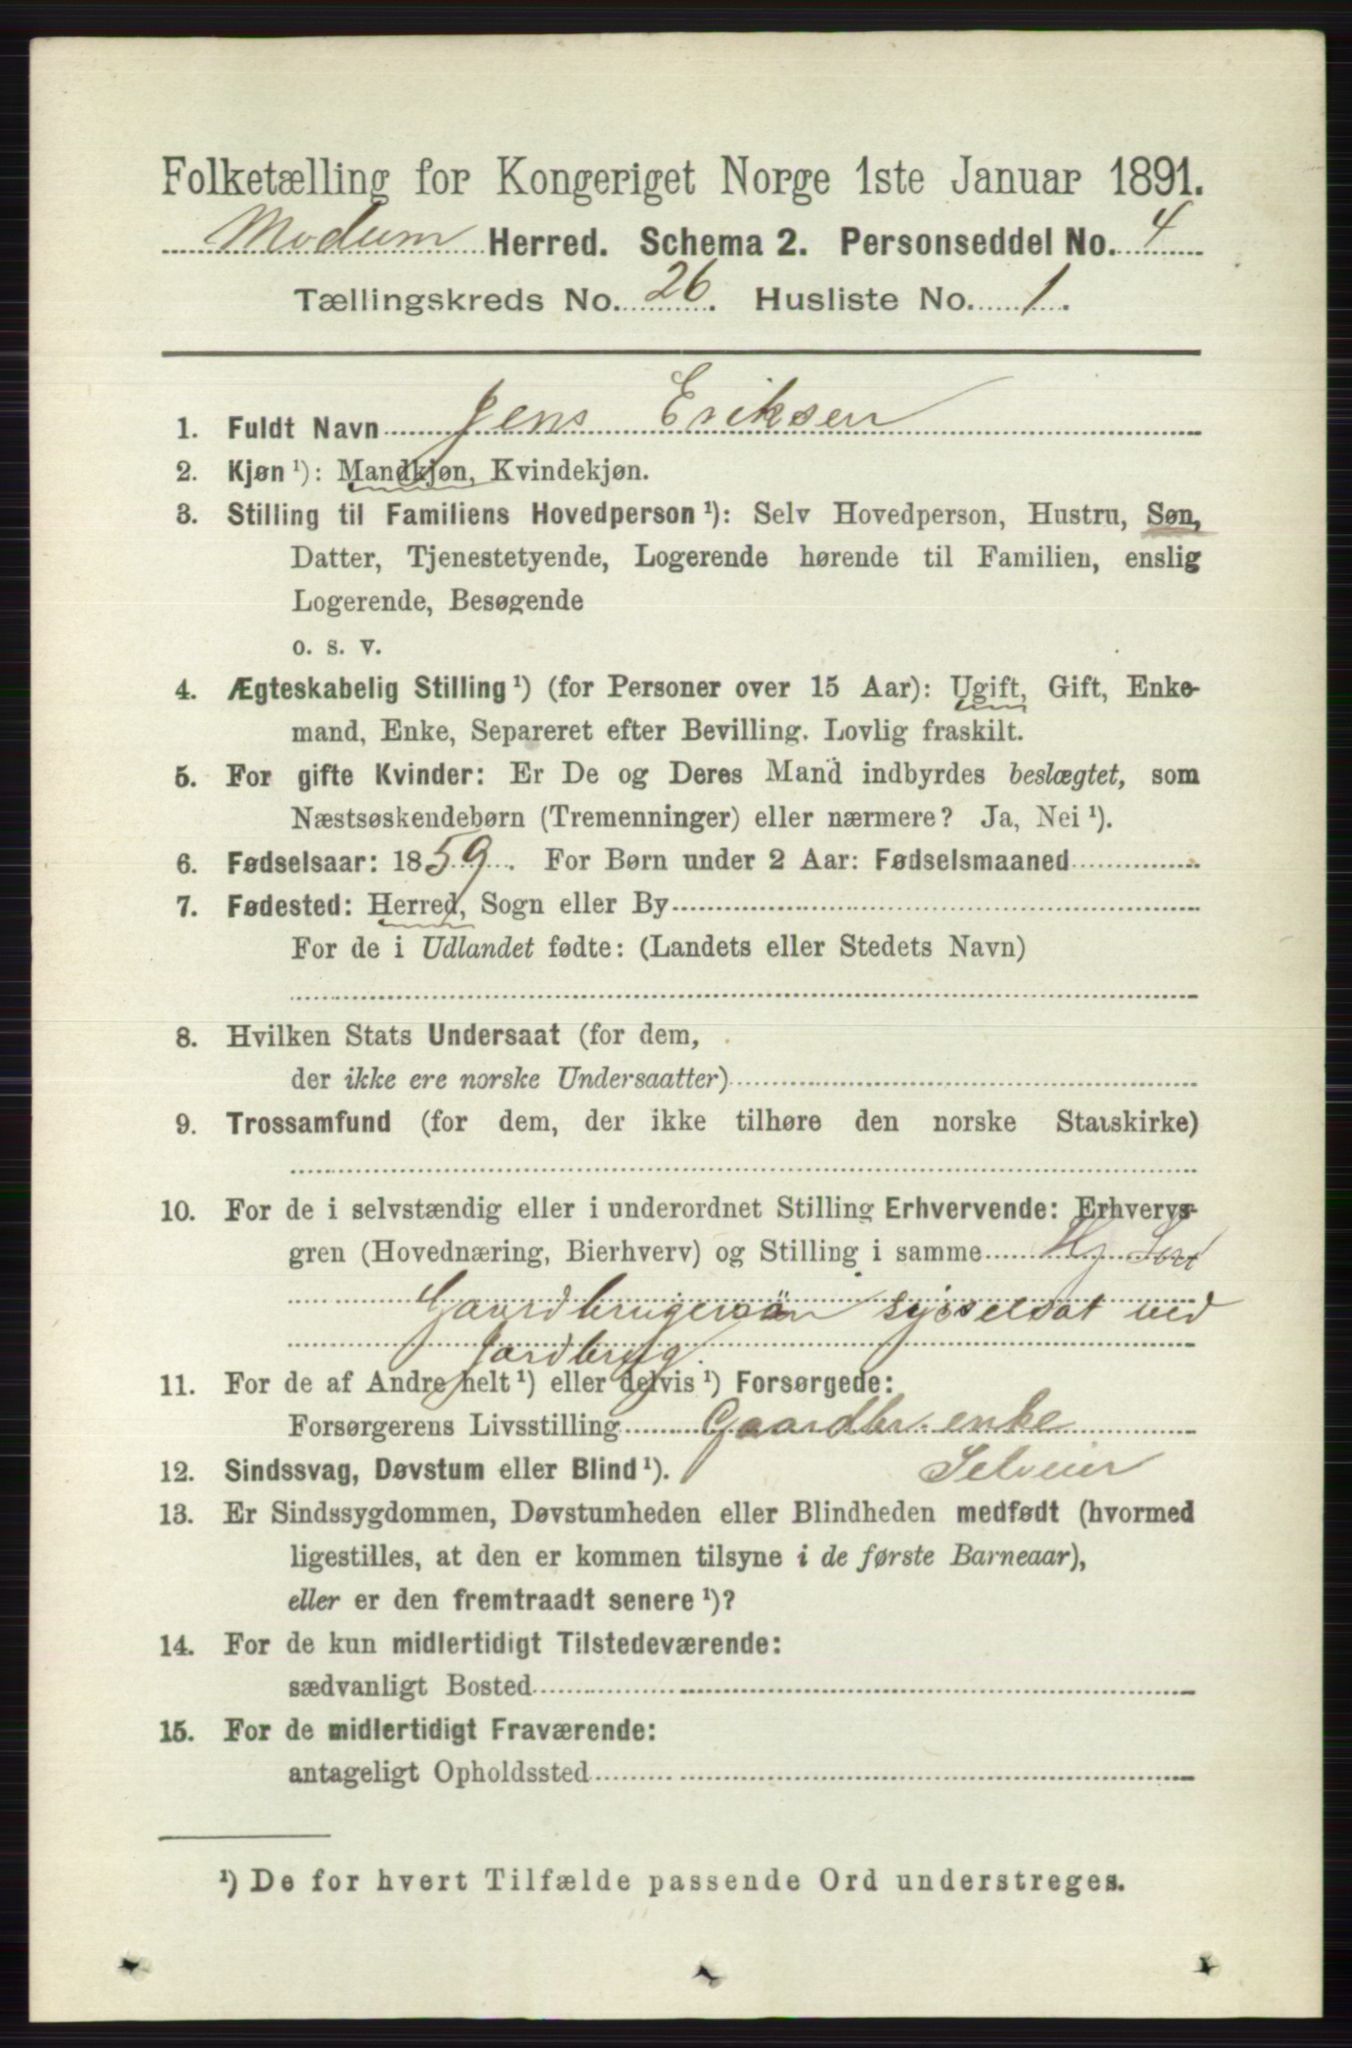 Folketælling for Kongeriget Norge 1ste Januar 1891.
Modum Herred. Schema 2. Personseddel No. 4
Tællingskreds No. 26. Husliste No. 1.
1. Fuldt Navn Jens Eriksen
2. Kjøn ¹): Mandkjøn, Kvindekjøn.
3. Stilling til Familiens Hovedperson ¹): Selv Hovedperson, Hustru, Søn,
Datter, Tjenestetyende, Logerende hørende til Familien, enslig
Logerende, Besøgende
o. s. v.
4. Ægteskabelig Stilling ¹) (for Personer over 15 Aar): Ugift, Gift, Enke-
mand, Enke, Separeret efter Bevilling. Lovlig fraskilt.
5. For gifte Kvinder: Er De og Deres Mand indbyrdes beslægtet, som
Næstsøskendebørn (Tremenninger) eller nærmere? Ja, Nei ¹).
6. Fødselsaar: 1859. For Børn under 2 Aar: Fødselsmaaned
7. Fødested: Herred, Sogn eller By
For de i Udlandet fødte: (Landets eller Stedets Navn)
8. Hvilken Stats Undersaat (for dem,
der ikke ere norske Undersaatter)
9. Trossamfund (for dem, der ikke tilhøre den norske Statskirke)
10. For de i selvstændig eller i underordnet Stilling Erhvervende: Erhvervs-
gren (Hovednæring, Bierhverv) og Stilling i samme
Gaardbrugersøn sysselsat ved
Jordbrug.
11. For de af Andre helt ¹) eller delvis ¹) Forsørgede:
Forsørgerens Livsstilling Gaardbr. enke
12. Sindssvag, Døvstum eller Blind ¹). Selveier
13. Er Sindssygdommen, Døvstumheden eller Blindheden medfødt (hvormed
ligestilles, at den er kommen tilsyne i de første Barneaar),
eller er den fremtraadt senere ¹)?
14. For de kun midlertidigt Tilstedeværende:
sædvanligt Bosted
15. For de midlertidigt Fraværende:
antageligt Opholdssted
¹) De for hvert Tilfælde passende Ord understreges.